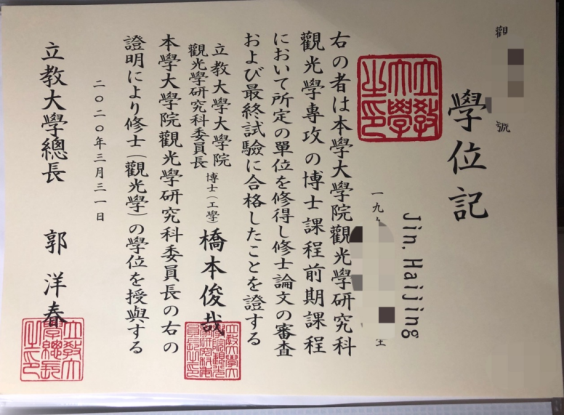 學位記
號
Jin, Haijing
一九
右の者は本學大學院觀光學研究科
觀光學專攻の博士課程前期課程
において所定の單位を修得し修士論文の審査
および最終試驗に合格したことを證する
立教大學大學院
觀光學研究科委員長 博士(工學) 橋本俊哉
本學大學院觀光學研究科委員長の右の
證明により修士(觀光學)の學位を授與する
二〇二〇年三月三一日
立教大學總長 郭洋春
立教
大學
之印